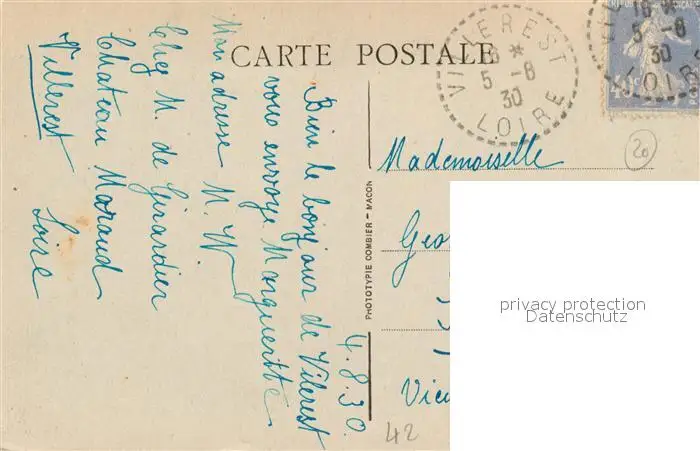 CARTE POSTALE
VILLEREST
16 *
5 - 8
30
LOIRE
5 - 8
30
LOIRE
40c
20
4.8.30.
Bien le bonjour de Vilerest
vous envoye Margueritte
Mon adresse M. W.
Chez M. de Girardier
Chateau Maraud
Villerest Loire
PHOTOTYPIE COMBIER – MACON
Mademoiselle
Geor
Vie
42
privacy protection
Datenschutz